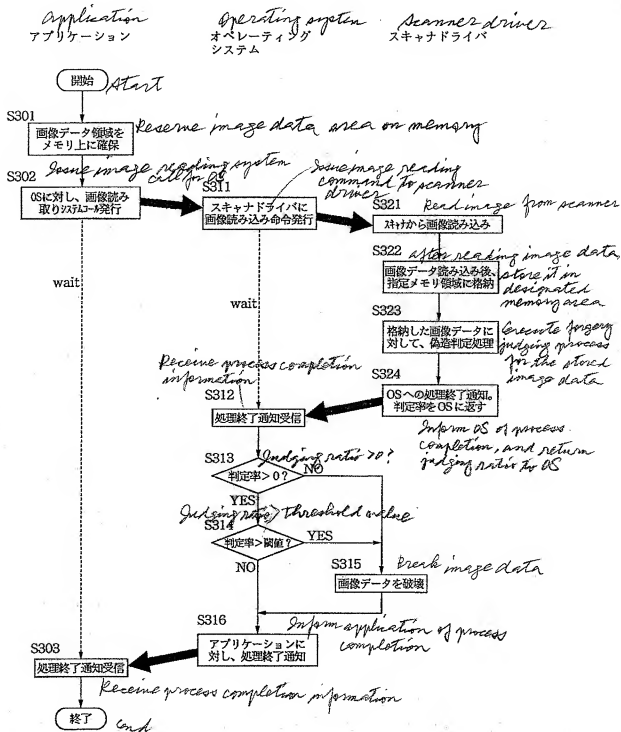 Application
Operating system
Scanner driver
アプリケーション
オペレーティング
システム
スキャナドライバ
開始
Start
S301
画像データ領域を
メモリ上に確保
Reserve image data area on memory
S302
Issue image reading system
call for OS
OSに対し、画像読み
取りシステムコール発行
S311
Issue image reading
command to scanner
driver
スキャナドライバに
画像読み込み命令発行
S321
Read image from scanner
スキャナから画像読み込み
S322
after reading image data,
store it in
designated
memory area
画像データ読み込み後、
指定メモリ領域に格納
wait
wait
S323
格納した画像データに
対して、偽造判定処理
Execute forgery
judging process
for the stored
image data
S324
OSへの処理終了通知。
判定率をOSに返す
Inform OS of process
completion, and return
judging ratio to OS
Receive process completion
information
S312
処理終了通知受信
S313
Judging ratio >0?
判定率>0?
NO
YES
Judging ratio > threshold value
S314
判定率>閾値?
YES
NO
S315
Break image data
画像データを破壊
S316
アプリケーションに
対し、処理終了通知
Inform application of process
completion
S303
処理終了通知受信
Receive process completion information
終了
end